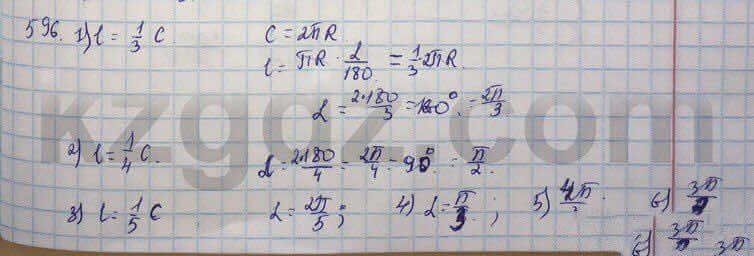 596. 1) l = 1/3 C. C = 2πR
l = πR · α/180 = 1/3 2πR.
α = 2·180/3 = 120° = 2π/3
kzgdz.com
2) l = 1/4 C. α = 2·180/4 = 2π/4 = 90° = π/2.
3) l = 1/5 C α = 2π/5; 4) α = π/3; 5) 4π/3. 6) 3π/2
6) 3π 3π